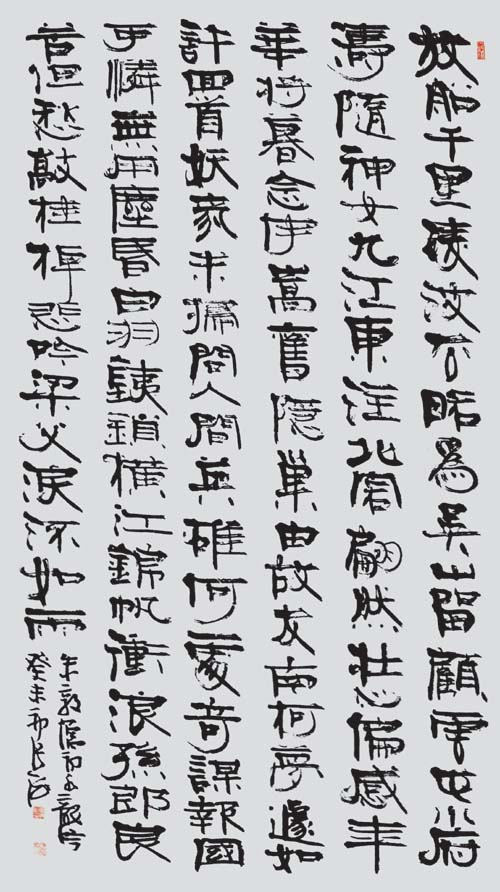 放船千里凌波去略為吳山留顧雲屯水府
濤隨神女九江東注北客翩然壯心偏感年
華將暮念伊嵩舊隱巢由故友南柯夢遽如
許回首妖氛未掃問人間英雄何處奇謀報國
可憐無用塵昏白羽銕鎖橫江錦帆衝浪孫郎良
苦但愁敲桂棹悲吟梁父淚流如雨
朱敦儒詞水龍吟
癸未